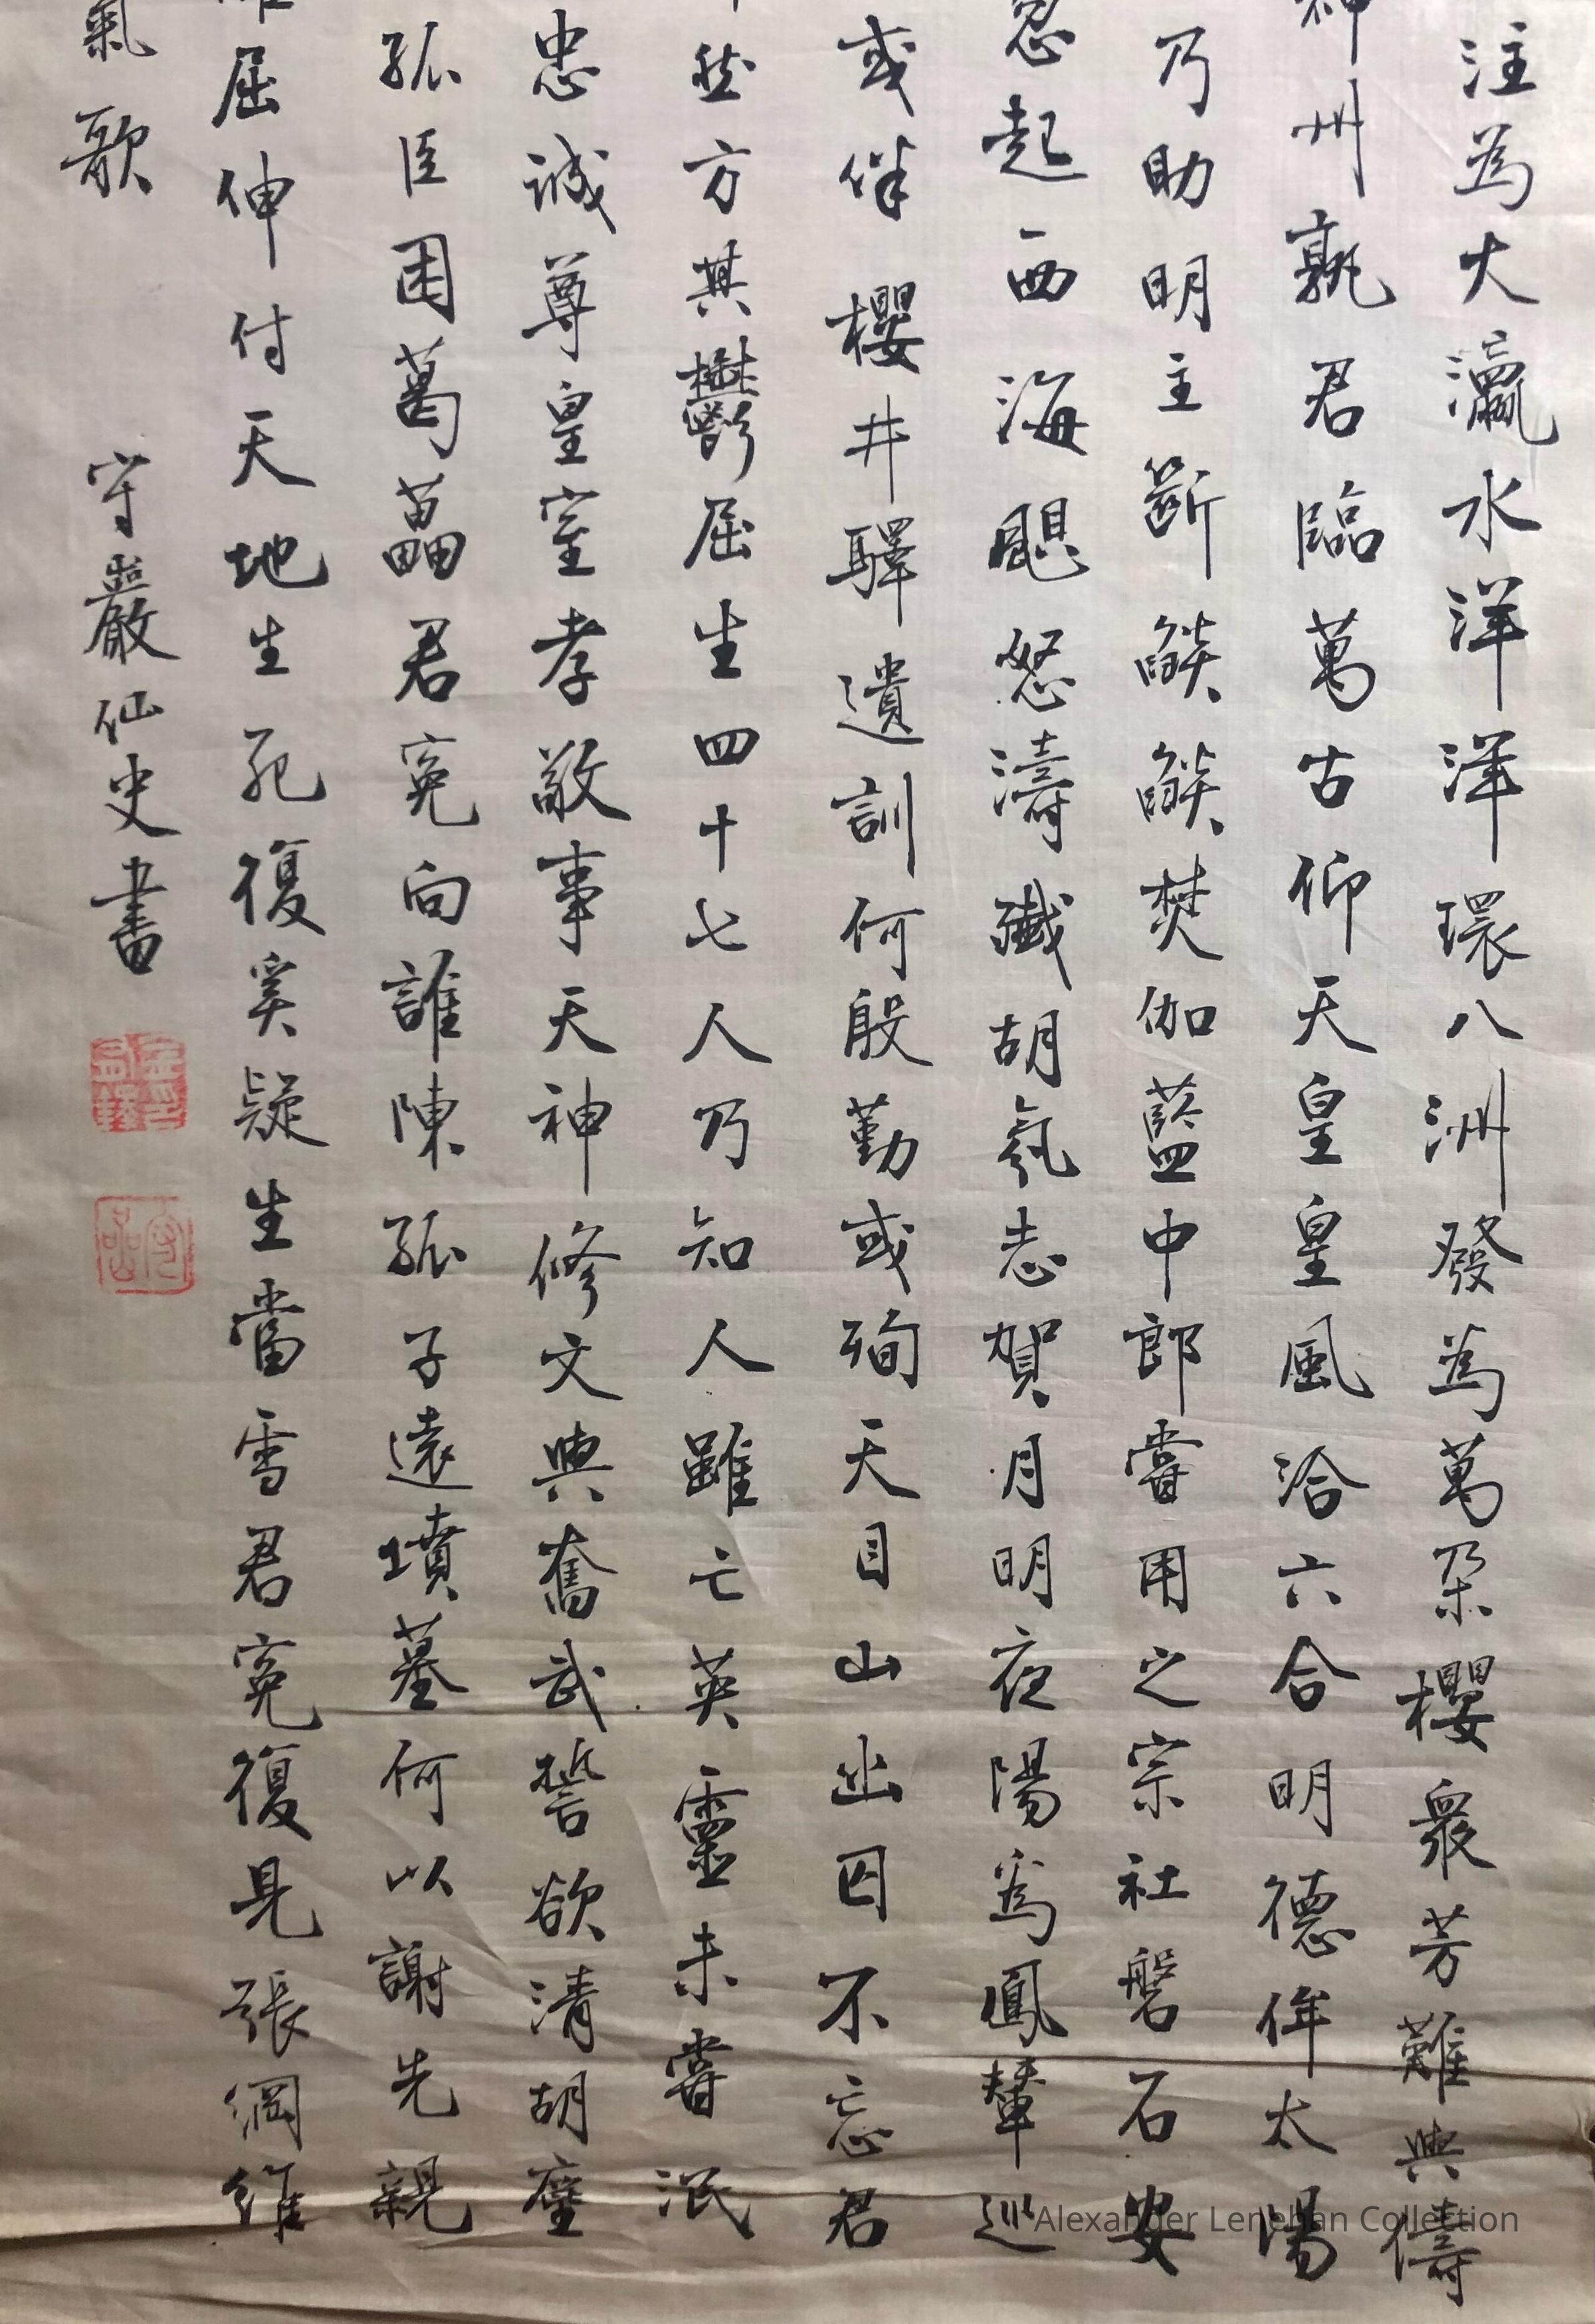 注為大瀛水洋洋環八洲發為萬朶櫻衆芳難與儔
神州孰君臨萬古仰天皇皇風洽六合明德侔太陽
乃助明主斷燄燄焚伽藍中郎嘗用之宗社磐石安
忽起西海颶怒濤殲胡氛志賀月明夜陽爲鳳輦巡
或伴櫻井驛遺訓何殷勤或殉天目山幽囚不忘君
然方其鬱屈生四十七人乃知人雖亡英靈未嘗泯
忠誠尊皇室孝敬事天神修文與奮武誓欲清胡塵
孤臣困葛藟君冤向誰陳孤子遠墳墓何以謝先親
屈伸付天地生死復奚疑生當雪君冤復見張綱維
氣歌
守嚴仙史書
Alexander Lenehan Collection